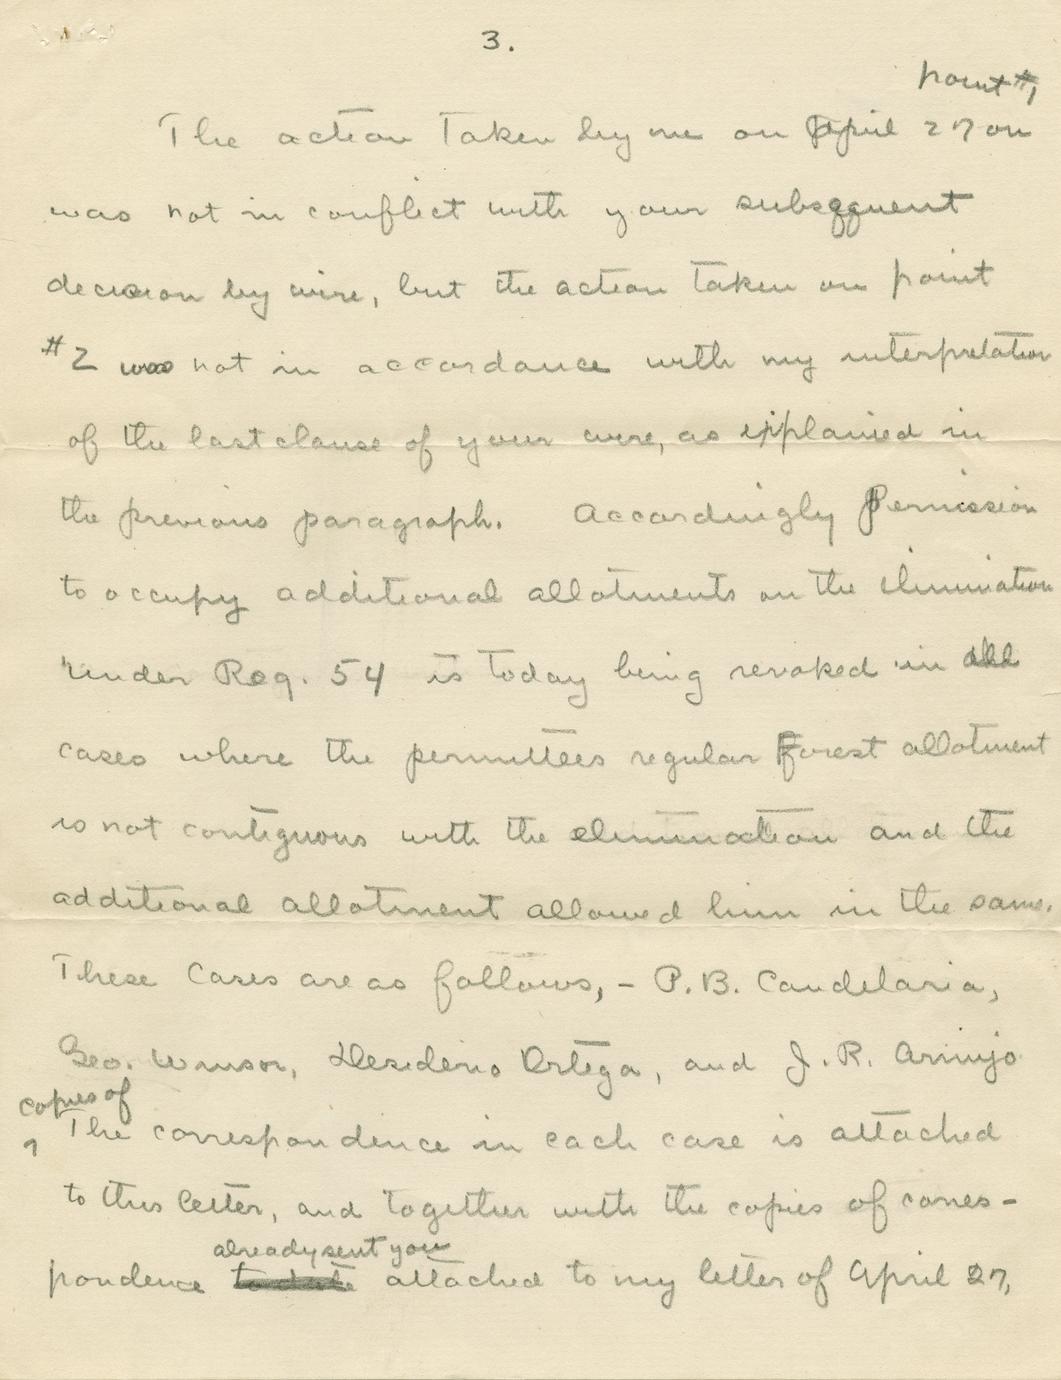 3.
point #1
The action taken by me on April 27 on
was not in conflict with your subsequent
decision by wire, but the action taken on point
#2 was not in accordance with my interpretation
of the last clause of your wire, as explained in
the previous paragraph. Accordingly Permission
to occupy additional allotments on the elimination
under Reg. 54 is today being revoked in all
cases where the permittees regular Forest allotment
is not contiguous with the elimination and the
additional allotment allowed him in the same.
These Cases are as follows, - P.B. Candelaria,
Geo. Winsor, Desiderio Ortega, and J.R. Armijo
copies of
The correspondence in each case is attached
to this letter, and together with the copies of corres-
already sent you
pondence to date attached to my letter of April 27,